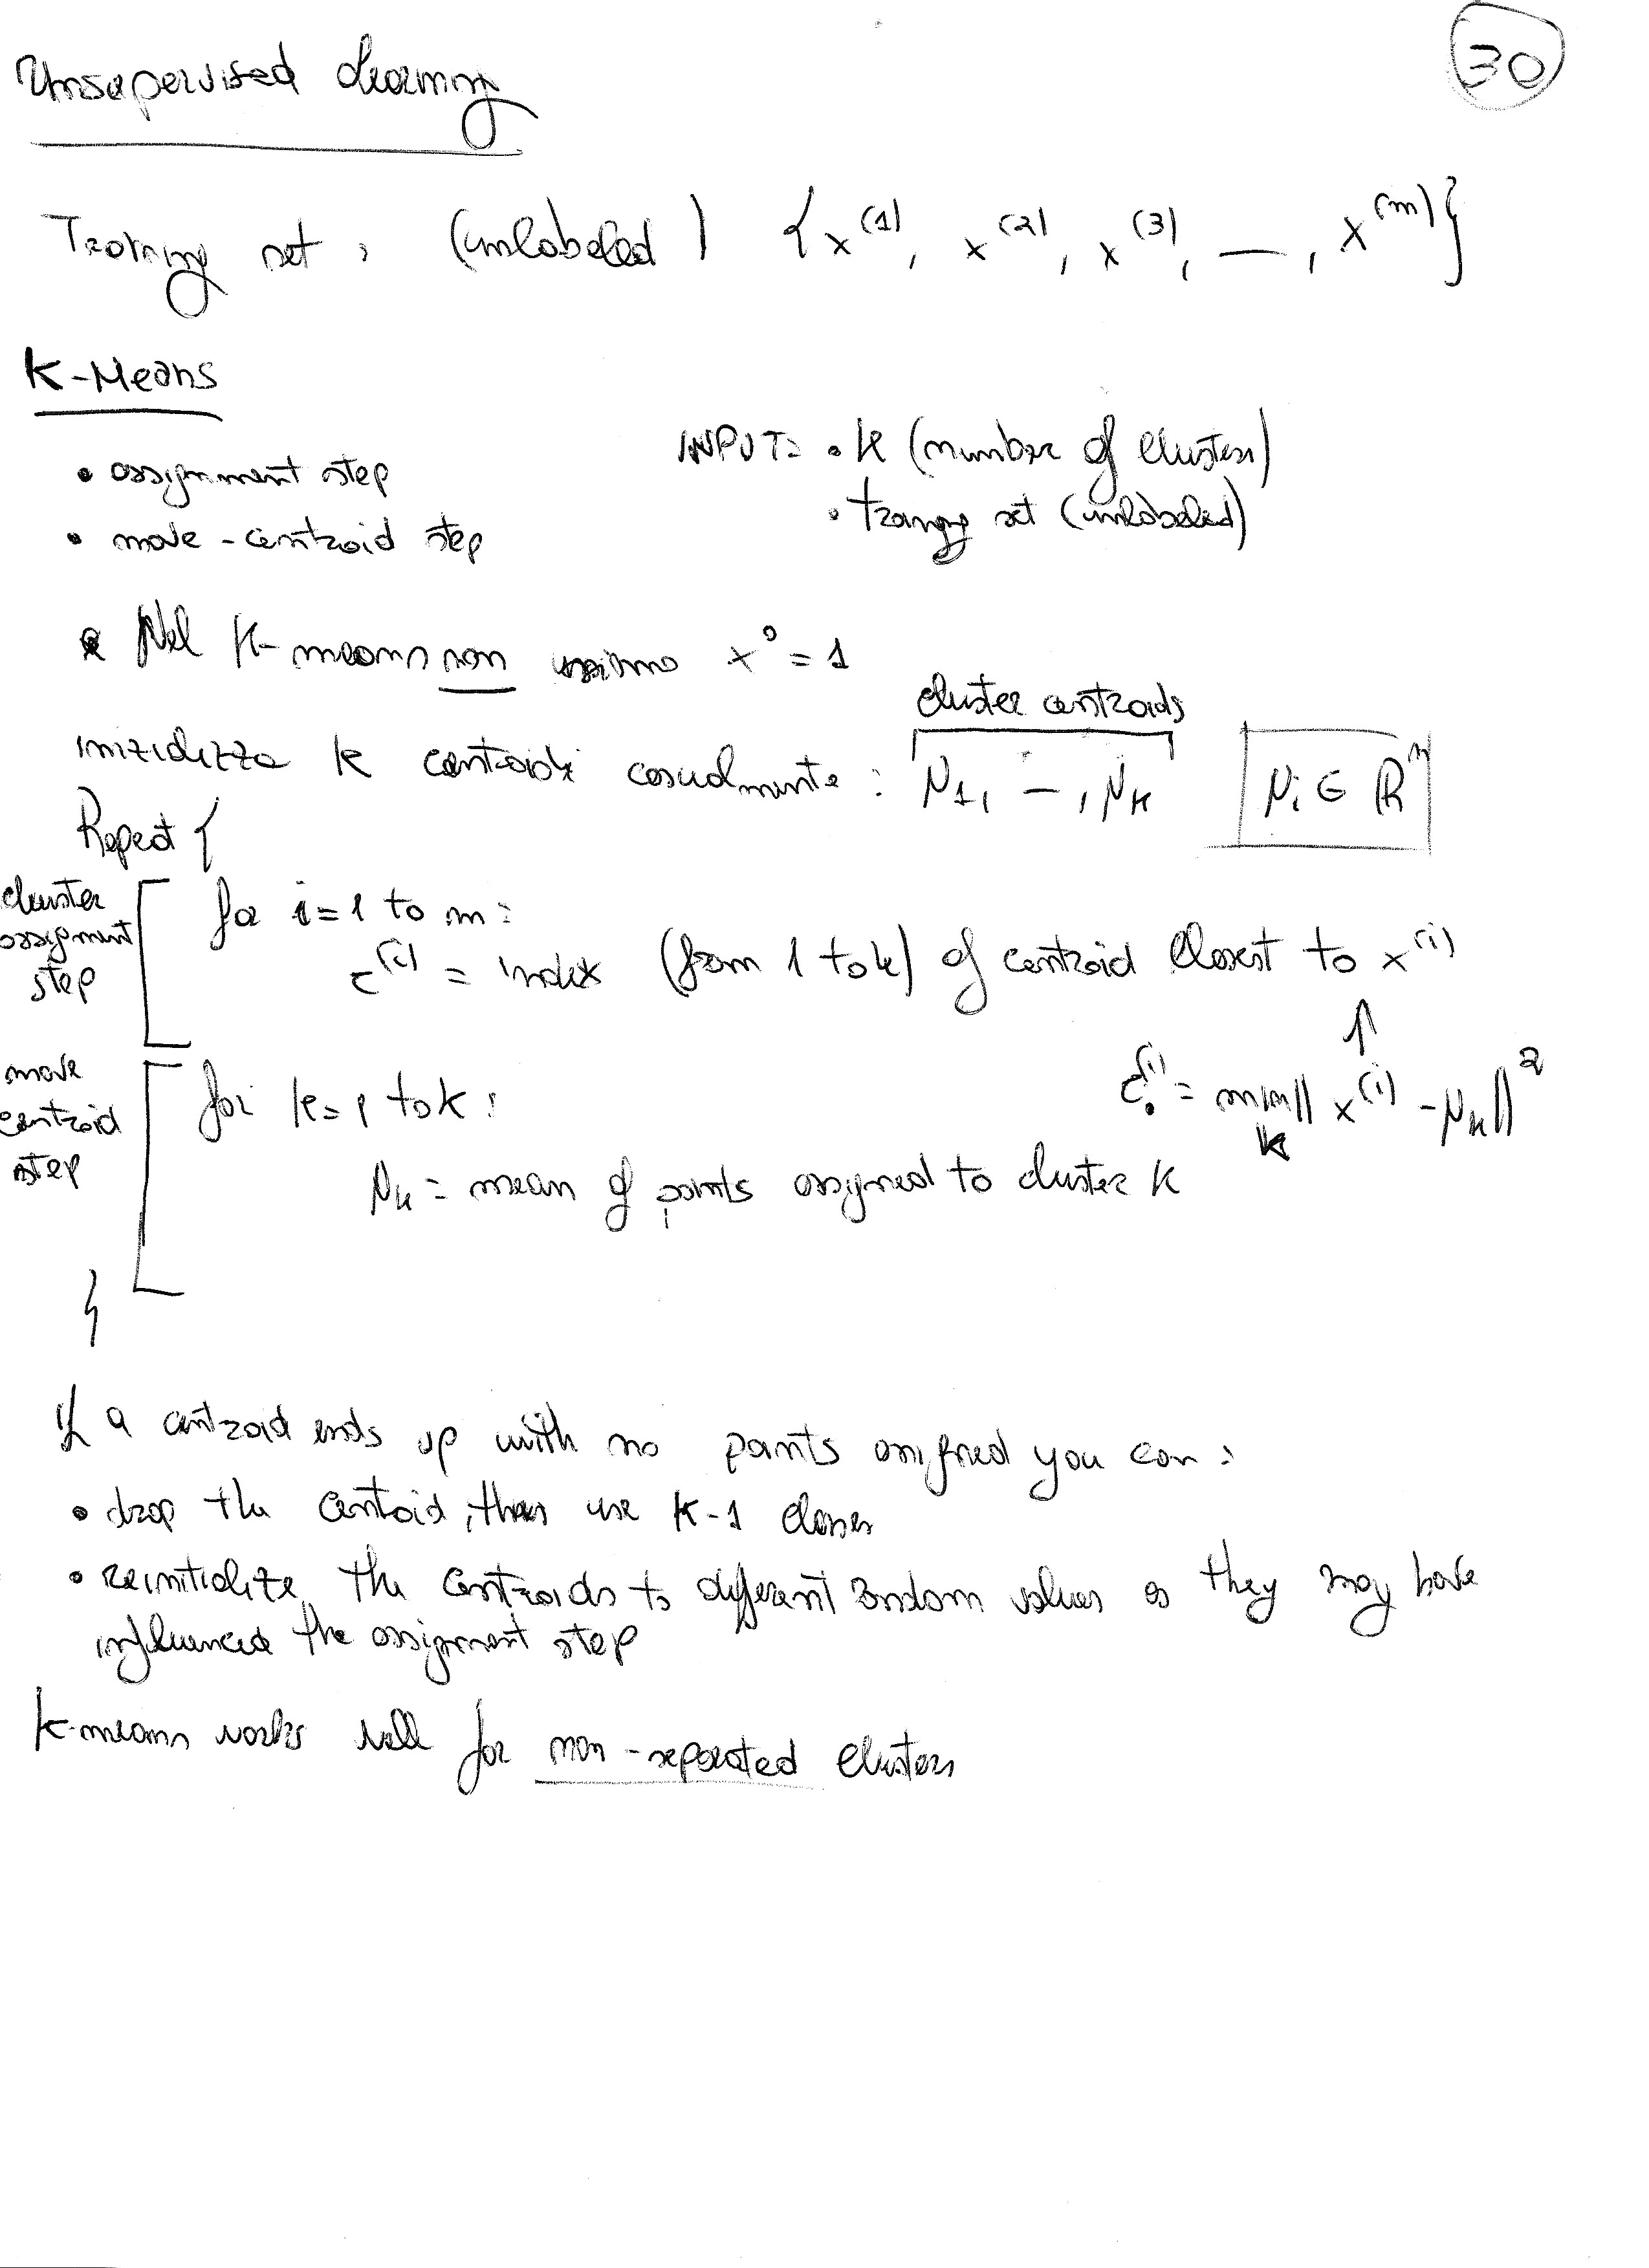 30
Unsupervised Learning
Training set : (unlabeled) {x^(1), x^(2), x^(3), —, x^(m)}
K-Means
• assignment step
• move-centroid step
INPUT: • K (number of clusters)
• training set (unlabeled)
• Nel K-means non usiamo x° = 1
cluster centroids
inizializza K centroidi casualmente : μ1, –, μK
μi ∈ R^n
Repeat {
cluster assignment step
for i=1 to m:
c^(i) = index (from 1 to k) of centroid closest to x^(i)
↑
c^(i) = min_k || x^(i) - μk ||^2
move centroid step
for k=1 to k:
μk = mean of points assigned to cluster K
}
If a centroid ends up with no points assigned you can :
• drop the centroid, then use K-1 classes
• reinitialize the centroids to different random values as they may have
influenced the assignment step
K-means works well for non-separated clusters